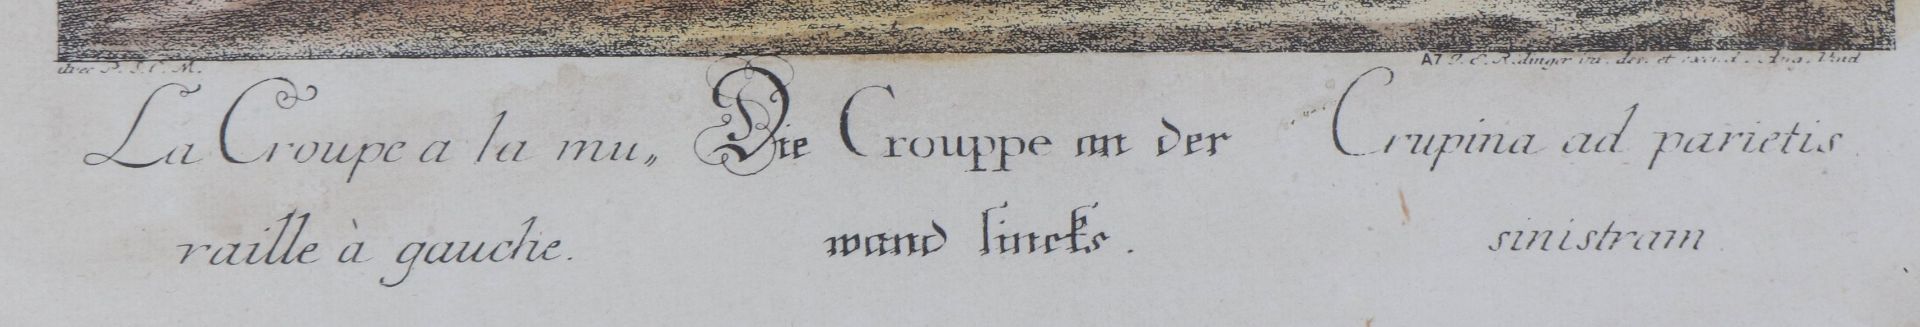 avec P. S. C. M.
A7 J. E. Ridinger inv. del. et excud. Aug. Vind
La Croupe a la mu„ Die Crouppe an der Crupina ad parietis
raille à gauche. wand lincks. sinistram